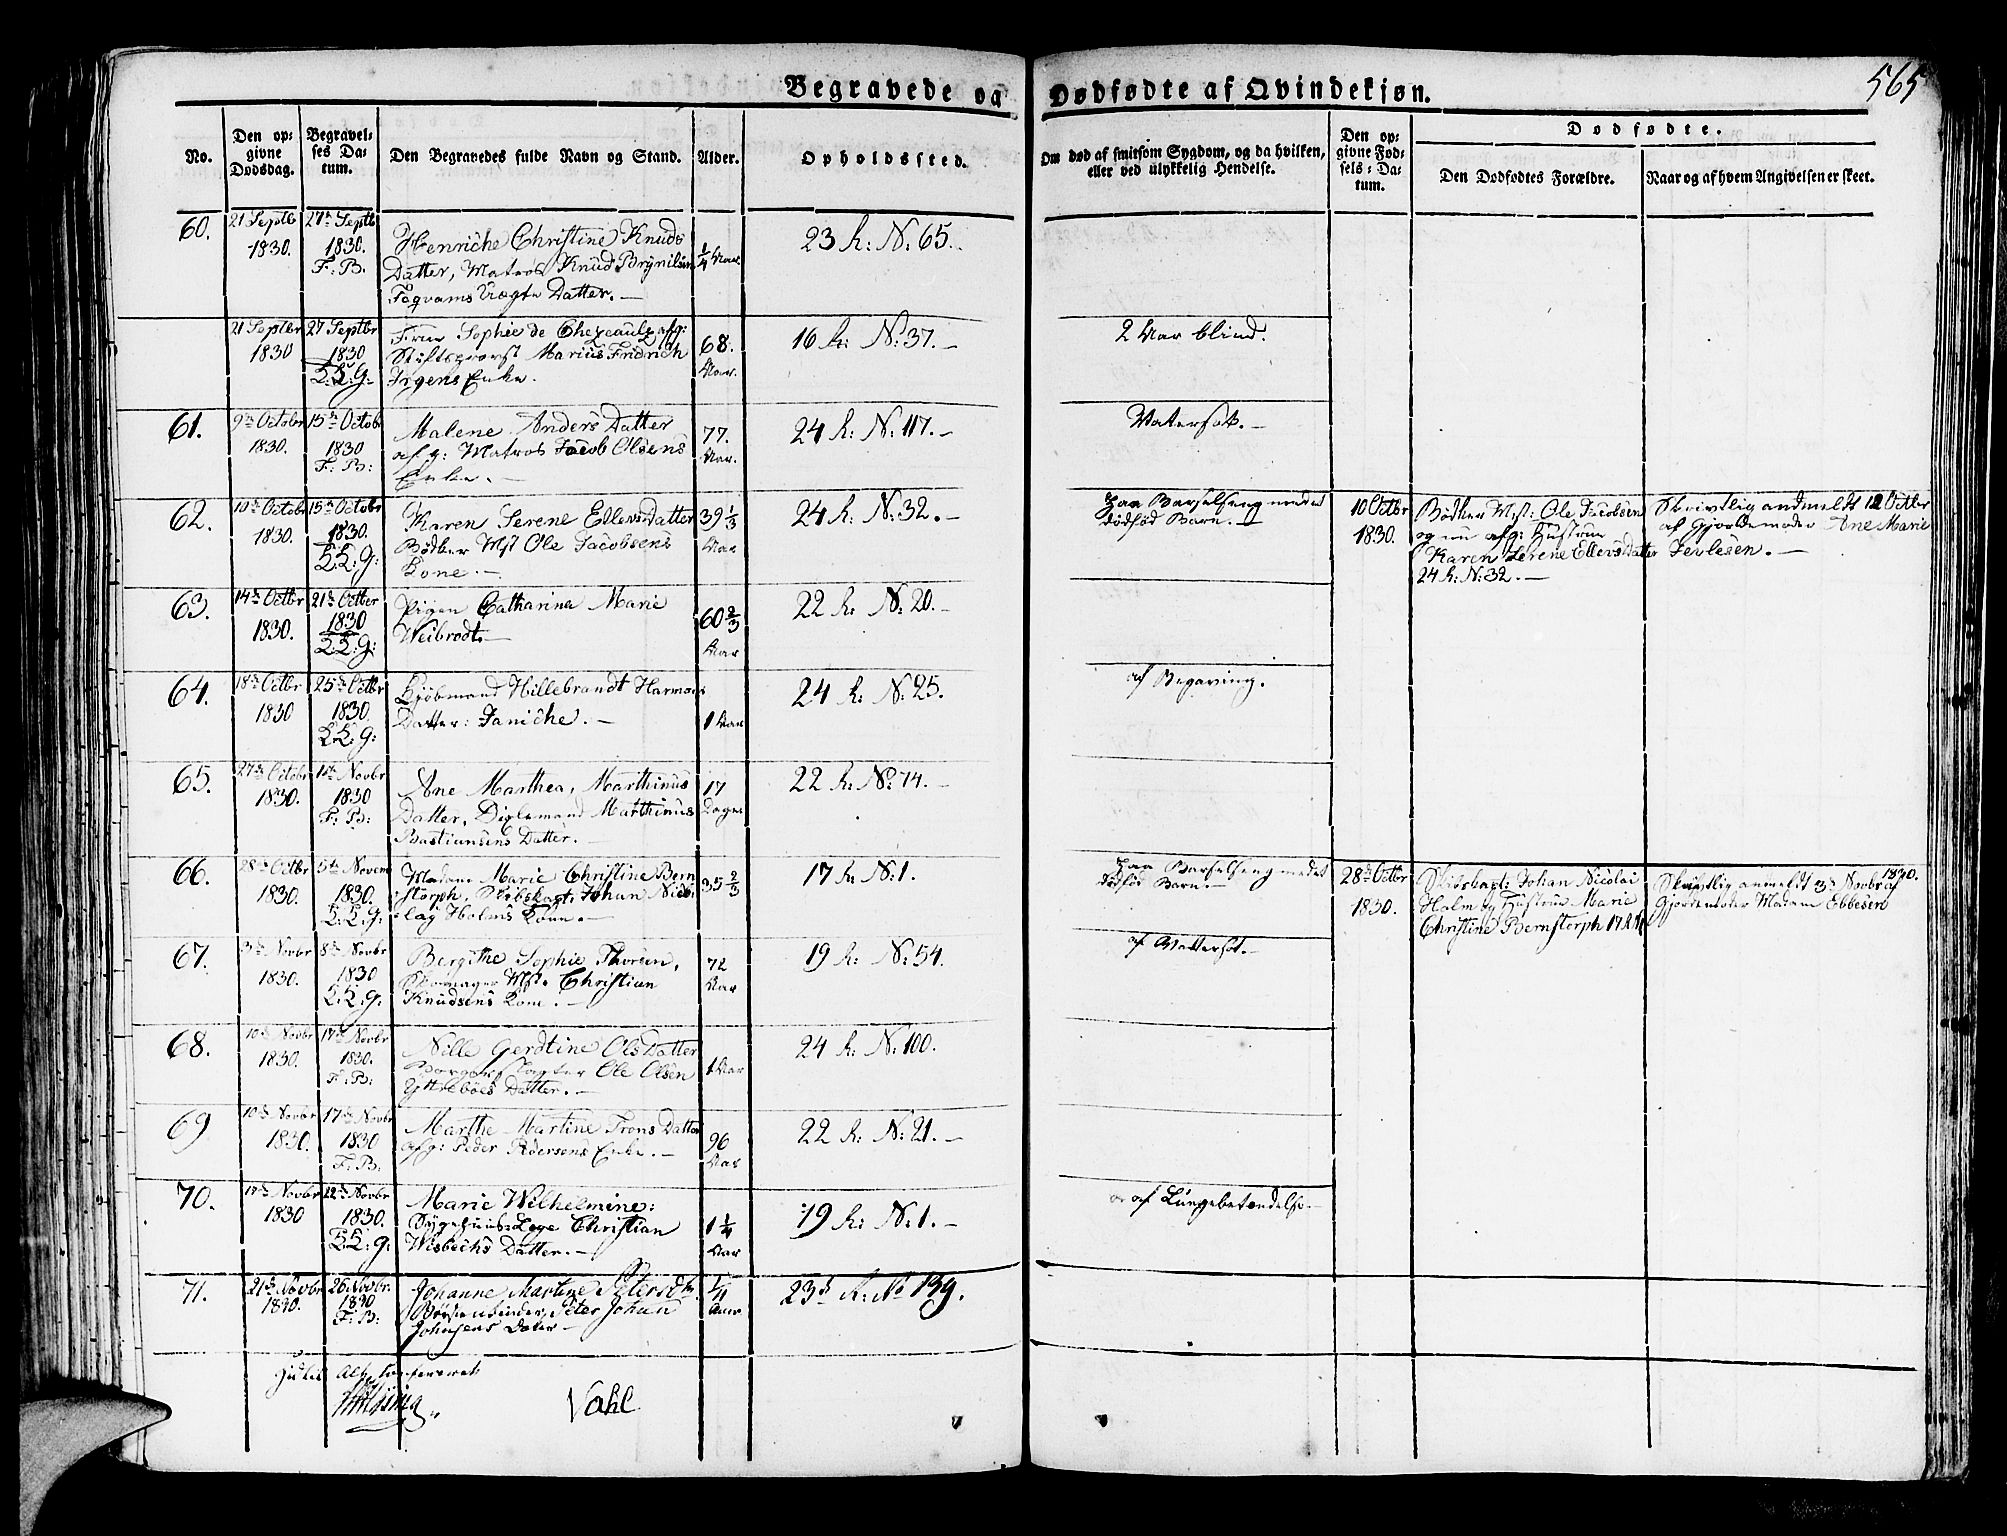 565
Begravede og Dødfødte af Qvindekjøn.
No.
Den op-
givne
Dødsdag.
Begravel-
ses Da-
tum.
Den Begravedes fulde Navn og Stand.
Alder.
Opholdssted.
Om død af smitsom Sygdom, og da hvilken,
eller ved ulykkelig Hendelse.
Den op-
givne Fød-
sels-Da-
tum.
Dødfødte.
Den Dødfødtes Forældre.
Naar og af hvem Angivelsen er skeet.
60.
21 Septbr
1830.
27de Septb
1830.
F: B.
Henriche Christine Knuds
Datter, Matros Knud Brynilsen
Fagvams Ægte Datter. —
1/4 Aar.
23 R: N: 65.
21 Septbr
1830
27 Septbr
1830
K.K.G.
Frue Sophie de Chezeaulz afg:
Stiftsprovst Marius Fridrich
Irgens Enke.
68.
Aar.
16 R: N: 37. —
2 Aar blind.
61.
9de Octobr
1830.
15de Octobr
1830
F: B:
Malene Anders Datter
afg: Matros Jacob Olsens
Enke. —
77.
Aar.
24 R: N: 117. —
Vatersot. —
62.
10de Octobr
1830.
15de Octobr
1830.
K.K: G:
Karen Serene Ellevs Datter
Bødker Mst Ole Jacobsens
Kone. —
39 1/3
Aar
24 R: N: 32. —
paa Barselseng medet
dödfød Barn.
10 Octbr
1830.
Bødker Mst: Ole Jacobsen
og nu afg: Hustrue
Karen Serene Ellevs Datter
24 R: N: 32. —
Skrivtlig anmeldt 12 Octbr
af Gjordemoder Ane Marie
Ierlesen. —
63.
14de Octbr
1830.
21de Octber
1830
K.K: G:
Pigen Catharina Marie
Weibrodt. —
60 2/3
Aar
22 R: N: 20. —
64.
18de Octbr
1830
25de Octbr
1830.
K.K: G:
Kjøbmand Hillebrandt Harmens
Datter: Janiche. —
1 Aar
24 R: N: 25.
af Begaving.
65.
27de Octobr
1830.
1ste Novbr
1830
F: B:
Ane Marthea, Marthinus
Datter, Marthinus
Bastiansens Datter. —
17
Dage
22 R: No 74. —
66.
28de Octbr
1830.
5te Novem
1830.
K.K: G:
Madame Marie Christine Bern
storph, Skibskapt: Johan Nico
lay Holms Kone. —
35 2/3
17 R: N: 1.
paa Barselseng medet
dødfød Barn. —
28de Octbr
1830.
Skibskapt: Johan Nicolai
Holm og Hustrue Marie
Christine Bernstorph 17 R N 1
Skrivtlig anmeldt 3de Novbr 1830. af
Gjordemoder Madam Ebbesen
67.
3de Novbr
1830.
8de Novbr
1830
K.K. G.
Bergithe Sophie Thorsen,
Skomager Mstr Christian
Knudsens Kone. —
72
Aar
19 R: N: 54.
af Vattersot. —
68.
10de Novbr
1830.
17de Novbr
1830.
F: B:
Nille Gerdtine Ols Datter
Ole Olsen
Yttrebøes Datter. —
1 Aar
24 R: N: 100.
69
10de Novbr
1830.
17de Novbr
1830
F: B:
Marthe Martine Trons Datter
afg: Peder Pedersens Enke. —
96
Aar
22 R: N: 21. —
70.
17de Novbr
1830
22de Novbr
1830.
K.K: G:
Marie Wilhelmine:
Sygehuus-Læge Christian
Wisbechs Datter. —
1 1/4
Aar
19 R: N: 1. —
af Lungebetændelse. —
71.
21de Novbr
1830.
26 Novbr.
1830
F: B:
Johanne Martine Petersdtr.
Børstenbinder, Peter Johan
Johnsens Dater —
1/4
Aar
23de R: No 139.
Vahl